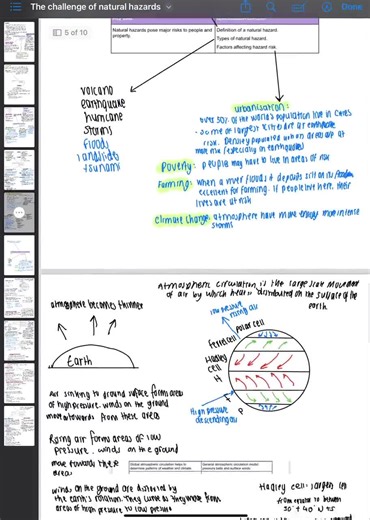 The challenge of natural hazards
Done
5 of 10
Natural hazards pose major risks to people and
property.
Definition of a natural hazard.
Types of natural hazard.
Factors affecting hazard risk.
volcano
earthquake
hurricane
storms
floods
landslides
tsunami
urbanisation:
over 50% of the world's population live in cities
- some of largest cities are at earthquake
risk. Densely populated urban areas are at
most risk (especially in earthquakes)
Poverty: people may have to live in areas of risk
Farming: when a river floods it deposits silt on its
excellent for farming. If people live here, their
lives are at risk
Climate change: atmosphere have more energy more intense
storms
Atmospheric circulation is the large scale movement
of air by which heat is distributed on the surface of the
earth
atmosphere becomes thinner
Earth
low pressure
rising air
Polar cell
Ferrel cell
Hadley
cell
H
F
P
High pressure
descending air
Air sinking to ground surface form areas
of high pressure. winds on the ground
move outwards from these areas
Rising air form areas of low
pressure. winds on the ground
move towards these
areas
winds on the ground are distorted by
the earth's rotation. They curve as they move from
areas of high pressure to low pressure
Global atmospheric circulation helps to
determine patterns of weather and climate.
General atmospheric circulation model:
pressure belts and surface winds.
Hadley cell: largest cell
from equator to between
30° + 40° N + S